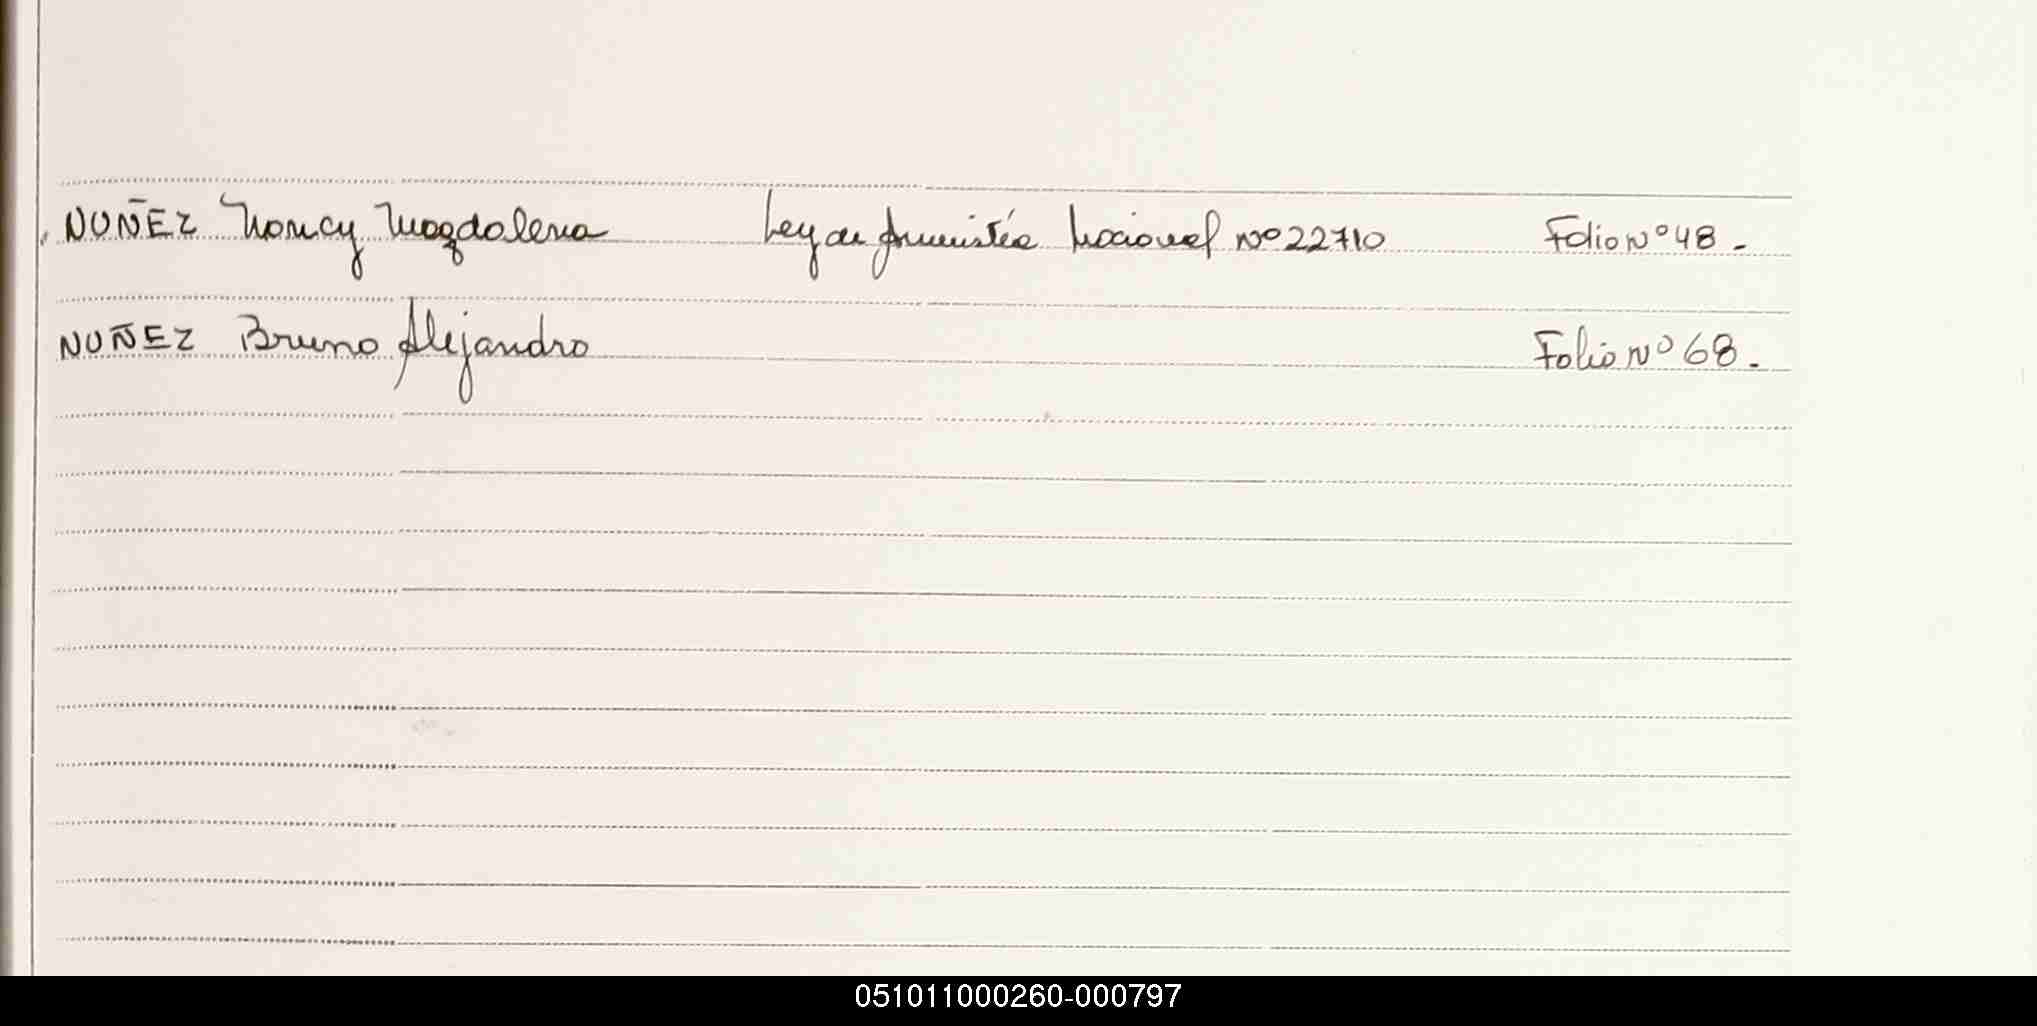 NUÑEZ Nancy Magdalena Ley de Amnistía Nacional Nº 22710 Folio Nº 48.-
NUÑEZ Bruno Alejandro Folio Nº 68.-
051011000260-000797